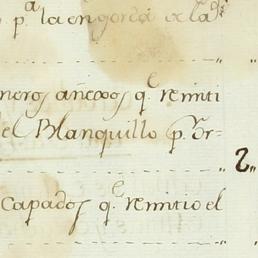 pª la engorda de la
neros añexos q.e remiti
el Blanquillo p.r or-
2
Capados q.e remitio el